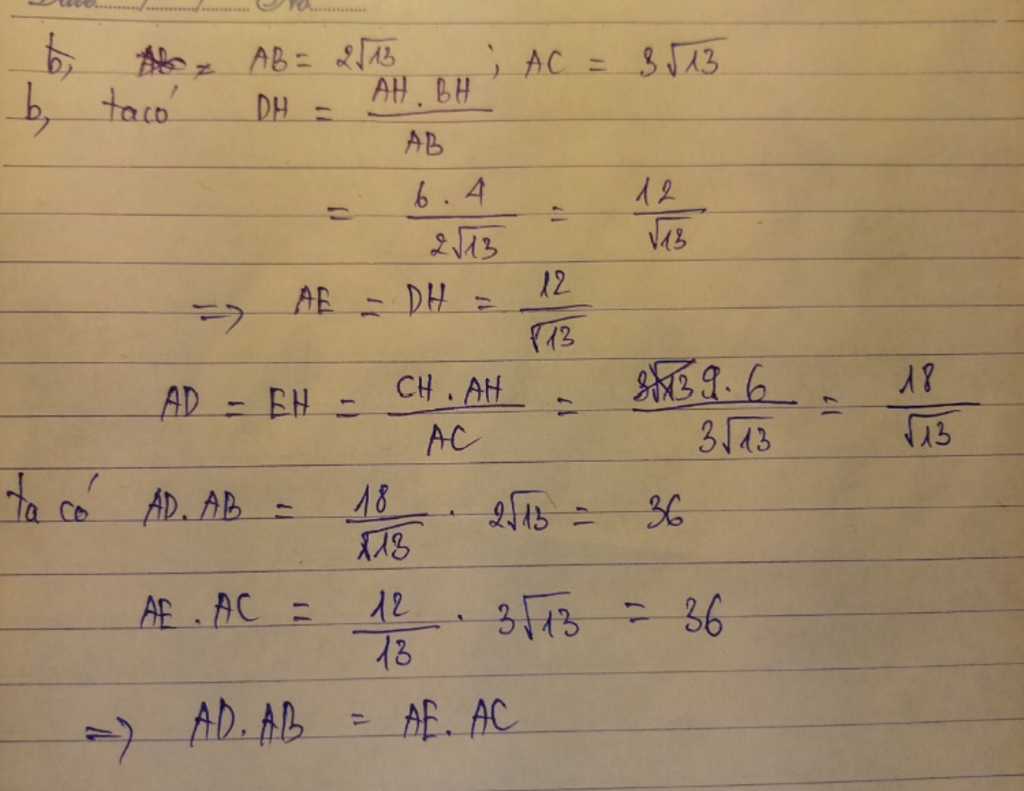 Date....../....../...... No..........
b, AB = 2√13 ; AC = 3√13
b, ta có DH = AH . BH / AB
= 6 . 4 / 2√13 = 12 / √13
=> AE = DH = 12 / √13
AD = EH = CH . AH / AC = 9 . 6 / 3√13 = 18 / √13
ta có AD . AB = 18 / √13 . 2√13 = 36
AE . AC = 12 / 13 . 3√13 = 36
=> AD . AB = AE . AC